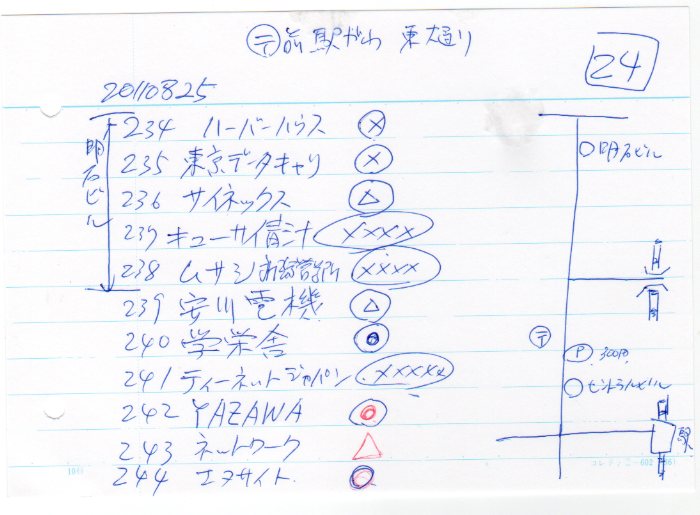 〒前 駅がわ 東大通り
24
20110825
明石ビル
234 ハーバーハウス ⓧ
235 東京データキャリ ⓧ
236 サイネックス △
237 キューサイ青汁 ××××
238 ムサシ ××××
239 安川電機 △
240 学栄舎 ◎
241 ティーネットジャパン ×××××
242 YAZAWA ◎
243 ネットワーク △
244 エヌサイト ○
○明石ビル
〒
Ⓟ 300円
○セントラルビル
駅
コレクト C-602